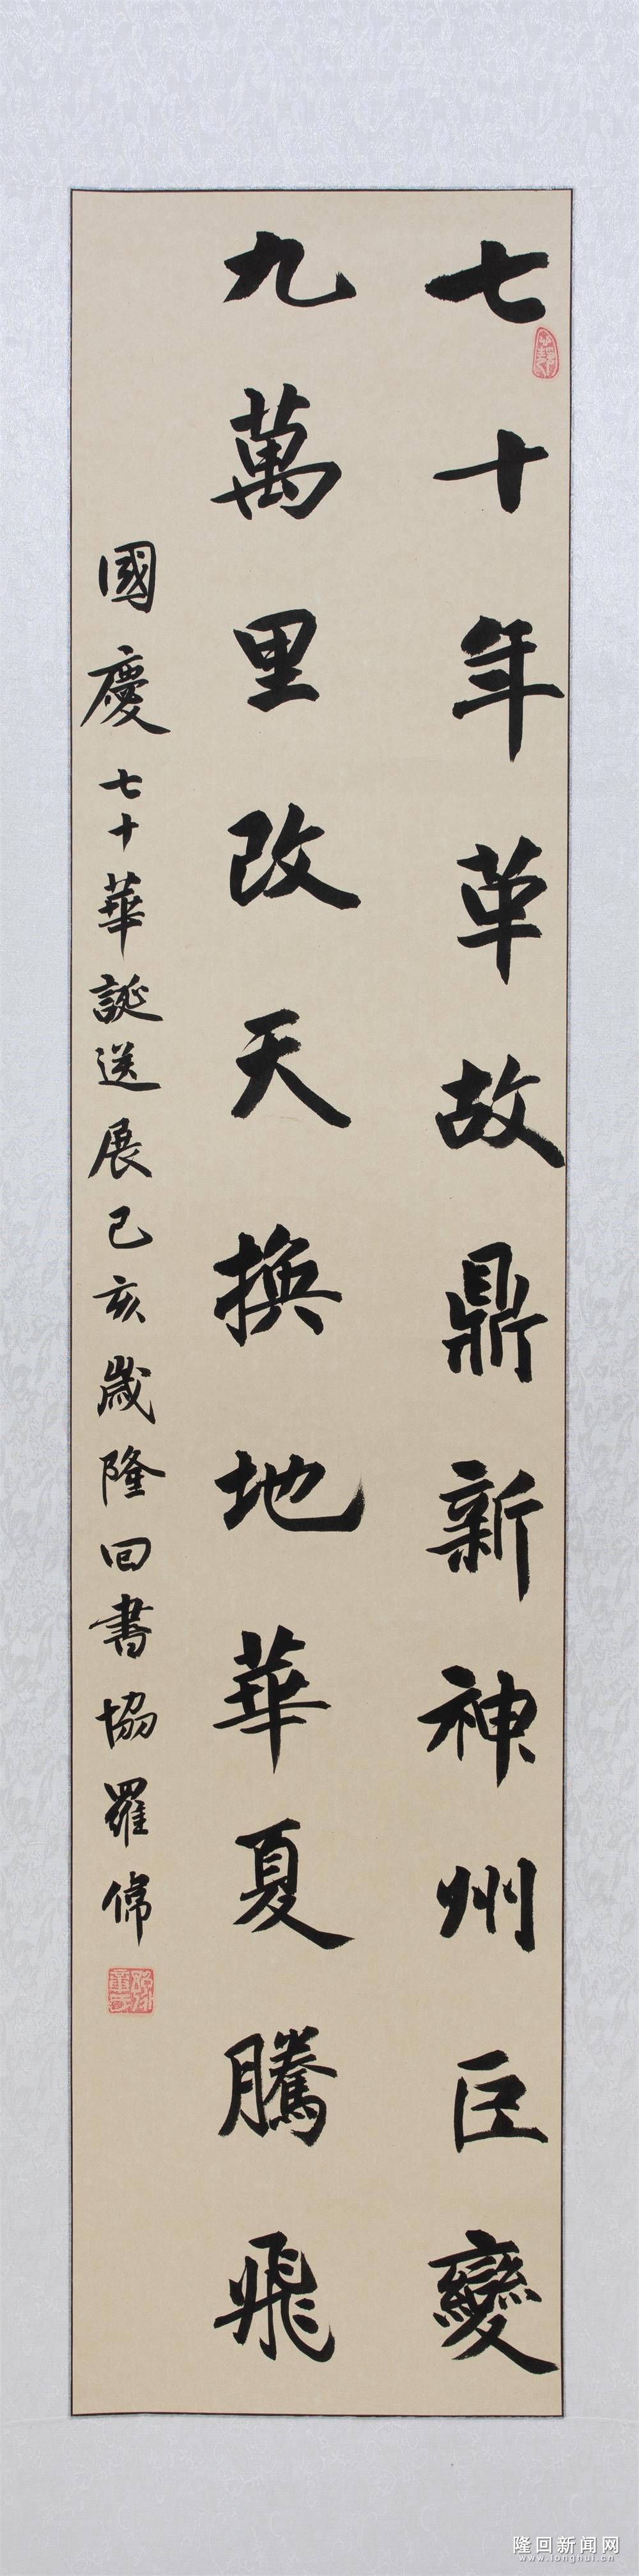 七十年革故鼎新神州巨變
九萬里改天換地華夏騰飛
國慶七十華誕送展己亥歲隆回書協羅偉
隆回新闻网
www.longhui.cn